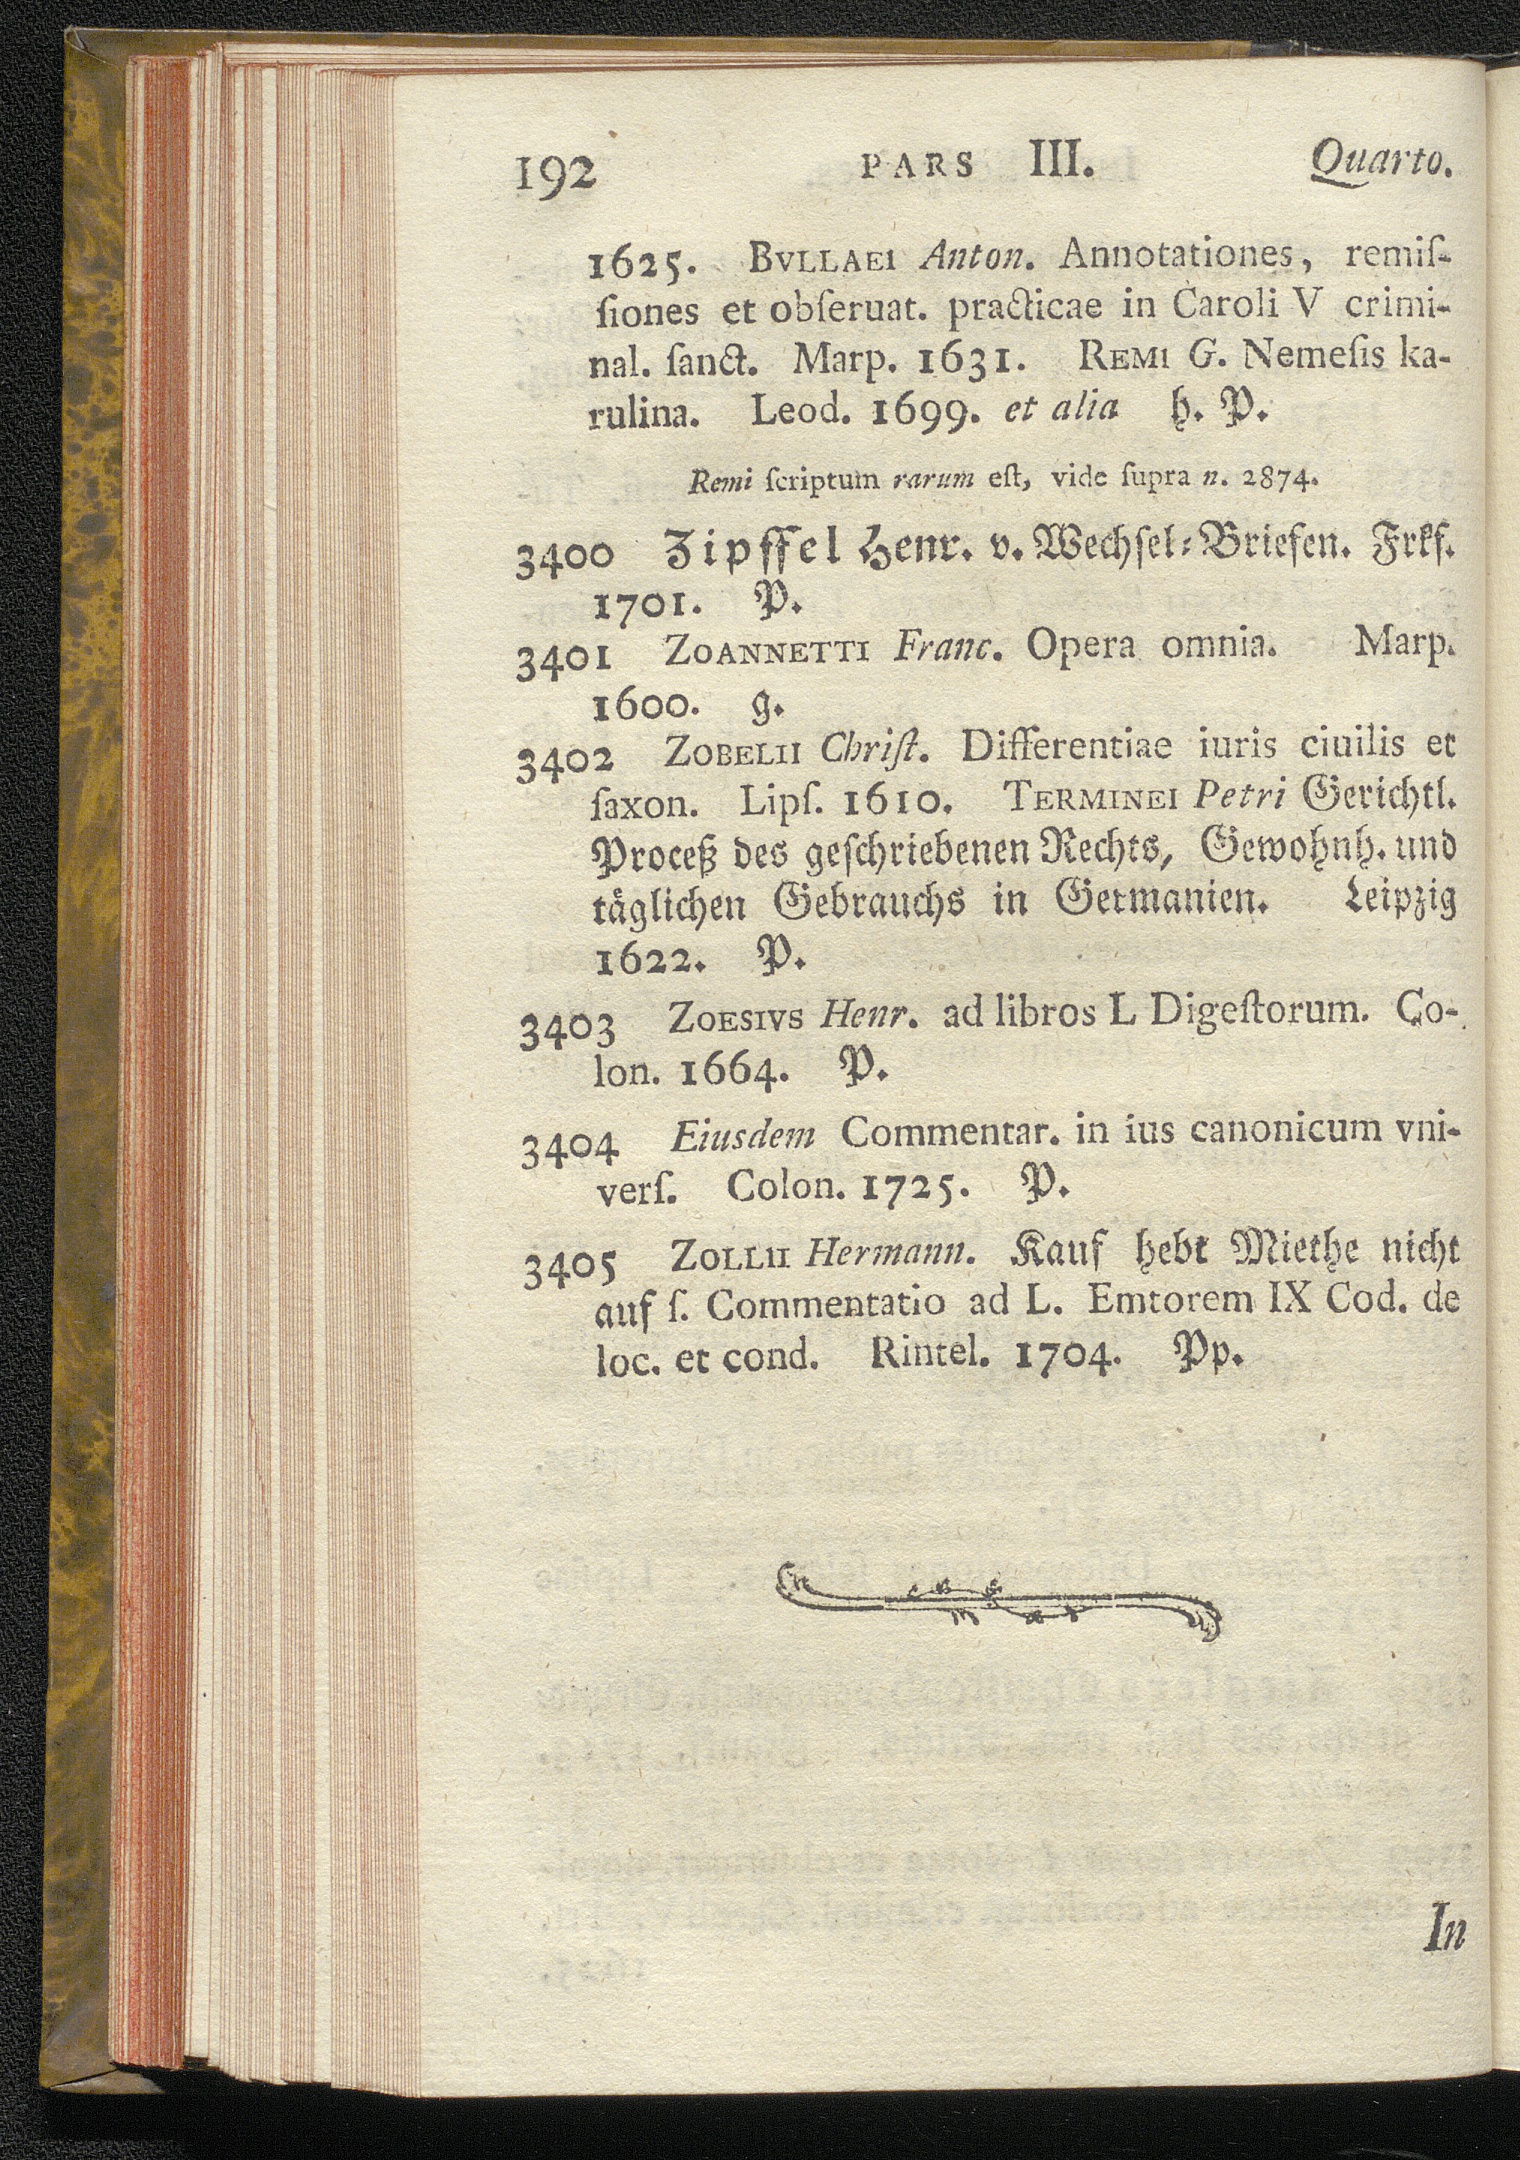 192 PARS III. Quarto.
1625. BVLLAEI Anton. Annotationes, remiſ-
ſiones et obſeruat. practicae in Caroli V crimi-
nal. ſanct. Marp. 1631. REMI G. Nemeſis ka-
rulina. Leod. 1699. et alia h. P.
Remi ſcriptum rarum eſt, vide ſupra n. 2874.
3400 Zipffel Henr. v. Wechſel-Briefen. Frkf.
1701. P.
3401 ZOANNETTI Franc. Opera omnia. Marp.
1600. g.
3402 ZOBELII Chriſt. Differentiae iuris ciuilis et
ſaxon. Lipſ. 1610. TERMINEI Petri Gerichtl.
Proceß des geſchriebenen Rechts, Gewohnh. und
täglichen Gebrauchs in Germanien. Leipzig
1622. P.
3403 ZOESIVS Henr. ad libros L Digeſtorum. Co-
lon. 1664. P.
3404 Eiusdem Commentar. in ius canonicum vni-
verſ. Colon. 1725. P.
3405 ZOLLII Hermann. Kauf hebt Miethe nicht
auf ſ. Commentatio ad L. Emtorem IX Cod. de
loc. et cond. Rintel. 1704. Pp.
In